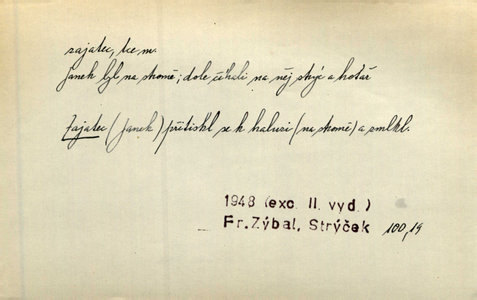 zajatec, tce m.
Janek byl na stromě; dole číhali na něj strýc a hotař
Zajatec (Janek) přitiskl se k haluzi (na stromě) a zmlkl.
1948 (exc. II. vyd.)
Fr. Zýbal, Strýček 100,19